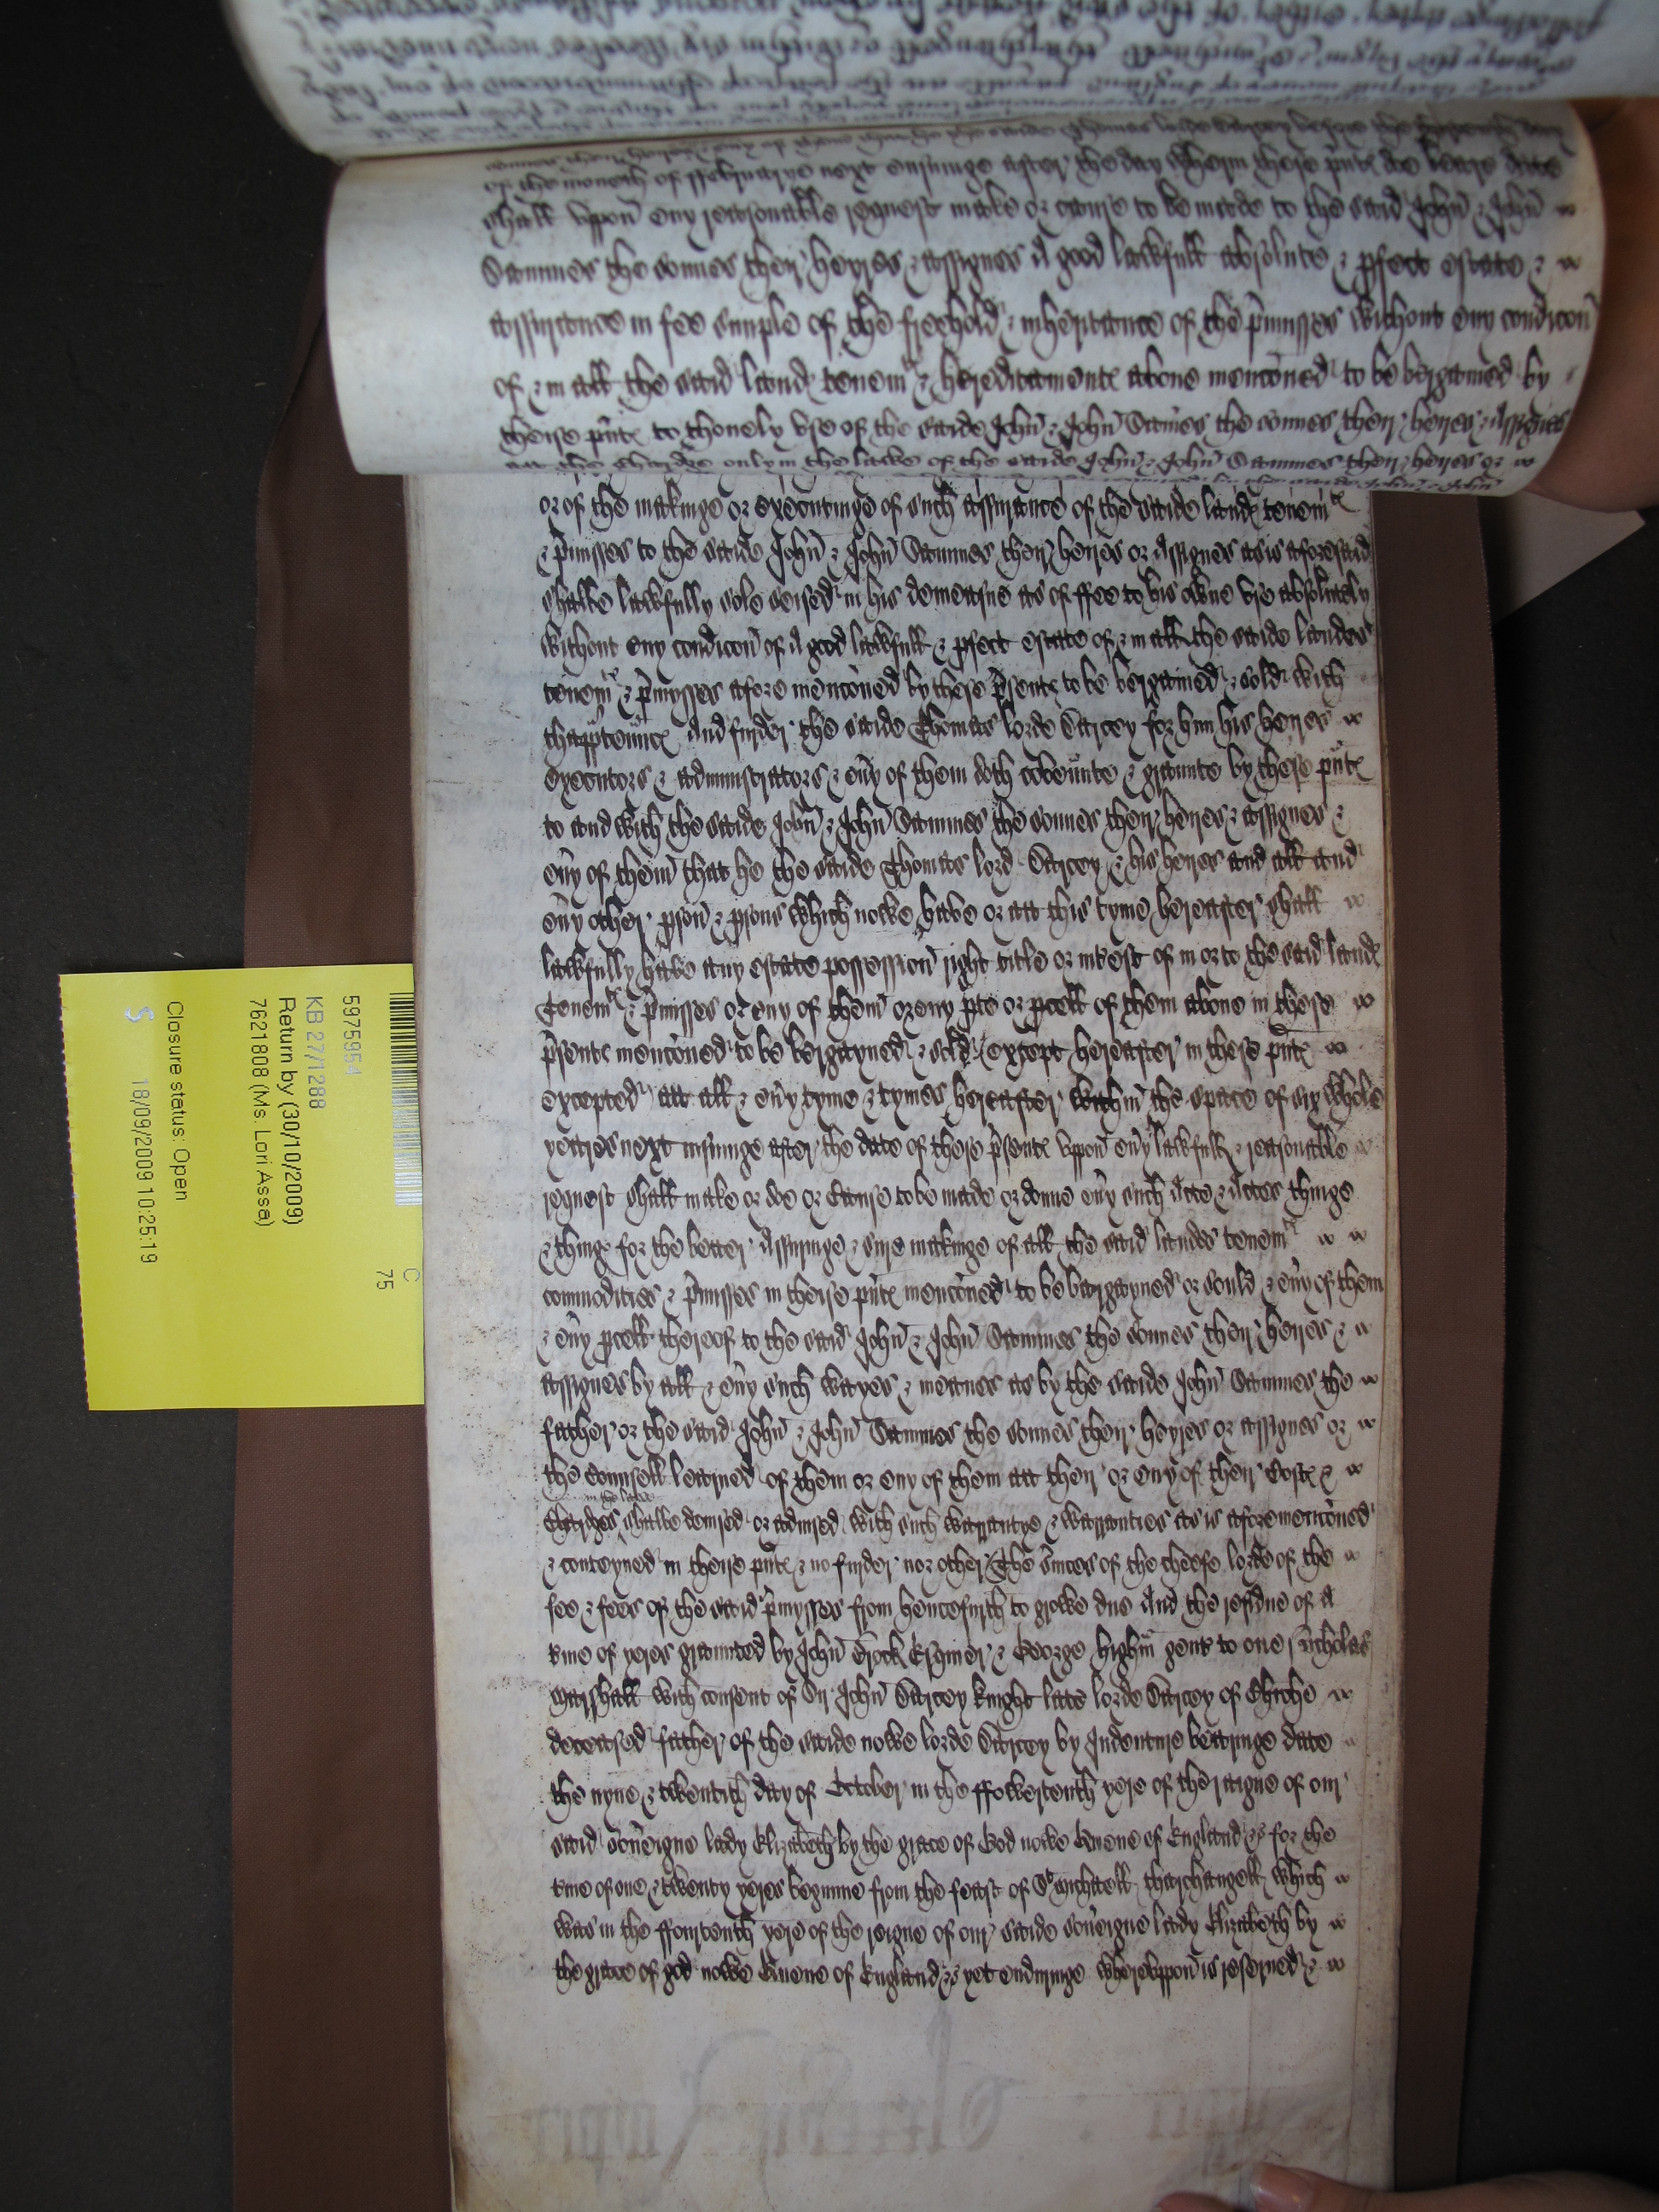 of the moneth of ffebruarye next ensuinge after the day wherin these p̃nte doe beare date
shall vppon eny reasonable request make or cause to be made to the said John & John
Sammes the sonnes their heyres & assignes A good lawfull absolute & pfect estate &
assurance in fee simple of the freehold & inheritance of the p̃misses without eny condicon
of & in all the said land tenemte & hereditamente aboue menconed to be bergained by
theise p̃nte to thonely vse of the saide John & John Sames the sonnes their heires & Assignes
att the Chardge only in the lawe of the saide John & John Sammes their heires or
or of the makinge or executinge of such assurance of the saide lande tenemte
& p̃misses to the saide John & John Sammes their heires or Assignes as is aforesaid
shalbe lawfully sole seised in his demeasne as of ffee to his owne vse absolutely
without eny condicon of A good lawfull & pfect estate of & in all the saide landes
tenemte & p̃mysses afore menconed by these p̃sente to be bergained & sold with
thapptennce And furder the saide Thomas lorde Darcey for him his heires
executors & administrators & eũy of them doth coveũnte & graunte by these p̃nte
to and with the saide John & John Sammes the sonnes their heires & assignes &
eũy of them that he the saide Thomas lord Darcey & his heires and all and
eũy other pson & psons which nowe have or att this tyme hereafter shall
lawfully have any estate possession right title or interest of in or to the said lande
Tenemte & p̃misses or eny of them or eny pte or pcell of them aboue in these
p̃sente menconed to be bergayned & sold (except hereafter in these p̃nte
excepted) att all & eũy tyme & tymes hereafter within the space of six whole
yeares next insuinge after the date of these p̃sente vppon eũy lawfull & reasonable
request shall make or doe or Cause to be made or donne eũy such Acte & Actes thinge
& thinge for the better Assuringe & sure makinge of all the said landes tenemte
commodities & p̃misses in theise p̃nte menconed to be bargayned or sould & eũy of them
& eũy pcell thereof to the said John & John Sammes the sonnes their heires &
assignes by all & eũy such wayes & meanes as by the saide John Sammes the
father or the said John & John Sammes the sonnes their heyres or assignes or
the Counsell learned of them or eny of them att their or eny of their Coste &
in the lawe
Chardges shalbe devised or advised with such warrantye & warranties as is aforemenconed
& conteyned in theise p̃nte & no furder nor other The s̃uices of the cheefe lorde of the
fee & fees of the said p̃mysses from hencefurth to growe due And the residue of A
tme of yeres graunted by John Brock Esquier & George higham gent to one Nicholas
Marshall with consent of Sir John Darcey knight late lorde Darcey of Chiche
deceased father of the saide nowe lorde Darcey by Indenture bearinge date
the nyne & twentith day of October in the ffowertenth yere of the raigne of our
said soũeigne lady Elizabeth by the grace of God nowe Quene of England &c for the
tme of one & twenty yeres begune from the feast of St Michaell tharchangell which
was in the ffourtenth yere of the reigne of our saide soũeigne lady Elizabeth by
the grace of god nowe Quene of England &c yet enduringe whereuppon is reserued &
C
75
5975954
KB 27/1288
Return by (30/10/2009)
7621808 (Ms. Lori Asse)
Closure status: Open
S
18/09/2009 10:25:19